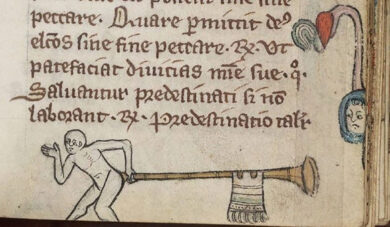 peccare. Quare permittit deꝰ
elc̃os sine fine peccare. R̃. Ut
patefaciat divicias mie̅ sue. q̊.
Saluantur predestinati si no̅
laborant. R̃. Predestinatio tali